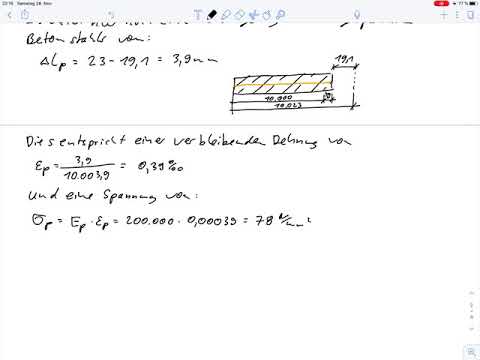 22:16 Samstag 28. Nov.
17 %
Betonstahls von:
ΔLp = 23 - 19,1 = 3,9mm
19,1
10.000
10.023
Dies entspricht einer verbleibenden Dehnung von
εp = 3,9 / 10.003,9 = 0,39 ‰
und eine Spannung von:
σp = Ep · εp = 200.000 · 0,00039 = 78 N/mm²